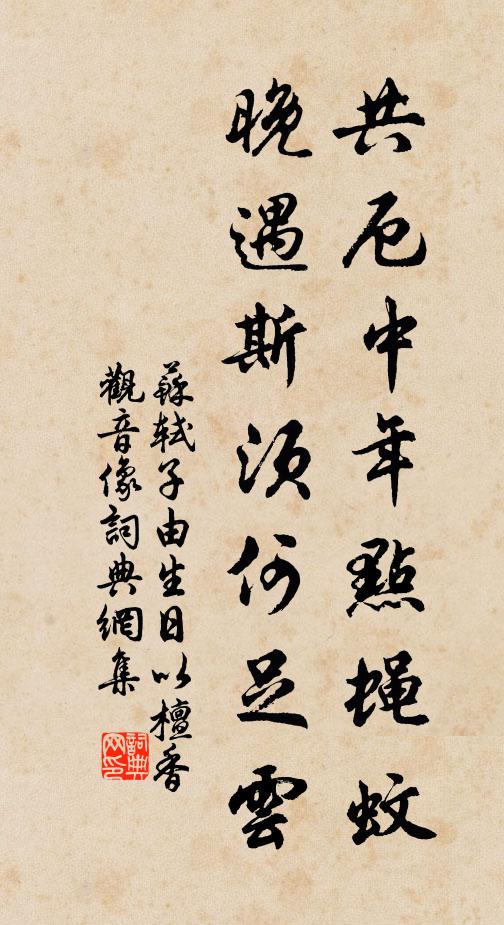 共厄中年點蠅蚊
晚遇斯須何足雲
蘇軾子由生日以檀香
觀音像詞典網集
詞典網印